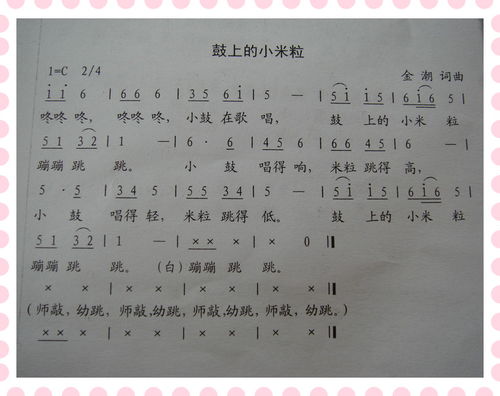 鼓上的小米粒
1=C 2/4
金潮 词曲
i i 6 | 6 6 6 | 3 5 6 i | 5 — | 5 i i 5 | 6 i 6 5 |
咚咚 咚， 咚咚 咚， 小鼓 在歌 唱， 鼓 上的 小米 粒
5 1 3 2 | 1 — | 6 · 6 | 6 4 5 6 | 6 6 4 5 | 6 — |
蹦蹦 跳 跳。 小 鼓 唱得 响， 米粒 跳得 高，
5 · 5 | 3 4 5 | 5 5 3 4 | 5 — | 5 i i 5 | 6 i 6 5 |
小 鼓 唱得 轻， 米粒 跳得 低。 鼓 上的 小米 粒
5 1 3 2 | 1 — | × × × | × 0 ‖
蹦蹦 跳 跳。 (白) 蹦蹦 跳 跳。
× × | × × | × × | × × ‖
(师敲，幼跳，师敲，幼跳，师敲，幼跳，师敲，幼跳。)
× × × | × × | × × | × × ‖